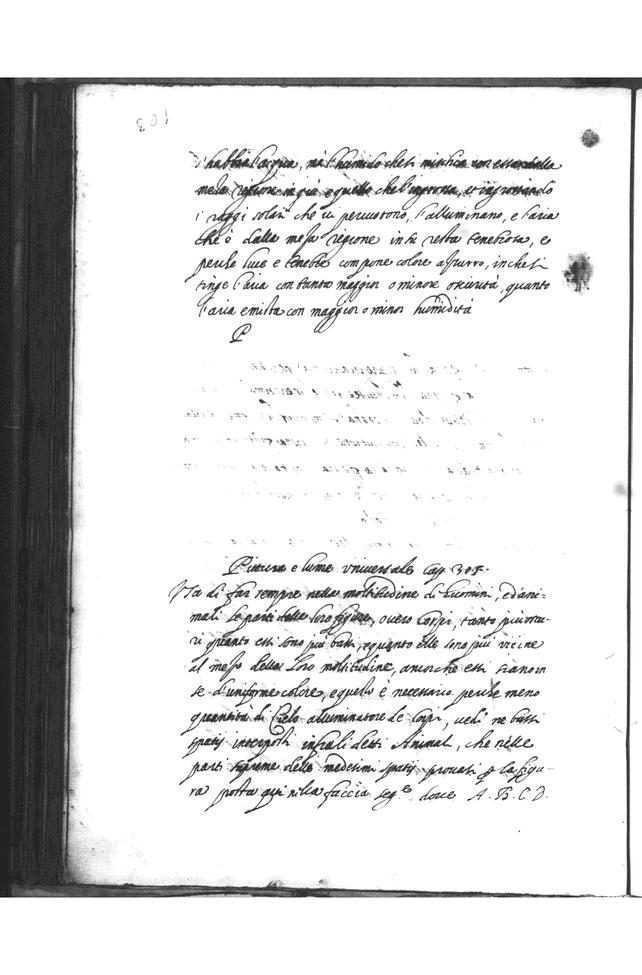 103
l'habbia l'acqua, mà l'humido che si mischia con essa dalla
meza regione in giù e quello che l'ingrossa, et ingrossando
i raggi solari che vi percuotono, l'alluminano, e l'aria
che è dalla meza regione in sù resta tenebrosa, e
perche luce e tenebre compone colore azurro, in che si
tinge l'aria con tanto maggior o minore oscurità, quanto
l'aria è mista con maggior o minor humidità
P
Pittura e lume universale Cap. 305.
Usa di far sempre nella moltitudine di huomini, ed ani-
mali le parti delle loro figure, overo corpi, tanto più oscu-
ri quanto essi sono più bassi, e quanto elle sono più vicine
al mezo della loro moltitudine, ancorche essi siano in
se d'uniforme colore, e quello è necessario perche meno
quantità di Cielo alluminatore de corpi, vedi ne bassi
spatij interposti infrali detti Animali, che nelle
parti supreme delle medesimi spatij provasi p la figu-
ra posta qui nilla faccia seg.e dove A. B. C D.